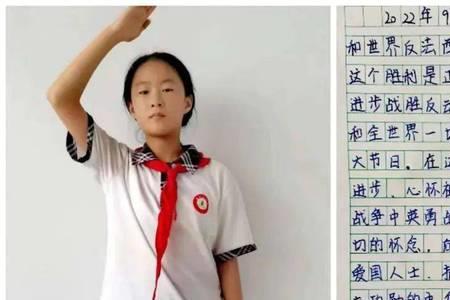 2022年9
和世界反法西
这个胜利是正
进步战胜反动
和全世界一切
大节日。在这
进步、心怀和
战争中英勇战
切的怀念，向
爱国人士、抗